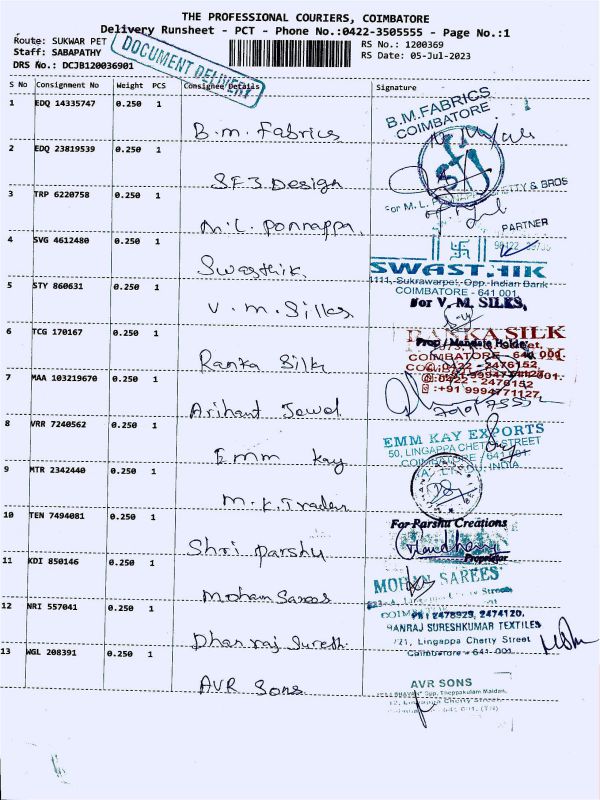 THE PROFESSIONAL COURIERS, COIMBATORE
Delivery Runsheet - PCT - Phone No.:0422-3505555 - Page No.:1
Route: SUKWAR PET
RS No.: 1200369
Staff: SABAPATHY
RS Date: 05-Jul-2023
DRS No.: DCJB120036901
DOCUMENT DELIVERY
S No Consignment No Weight PCS Consignee Details Signature
1 EDQ 14335747 0.250 1
B.M. Fabrics
B.M.FABRICS
COIMBATORE
2 EDQ 23819539 0.250 1
SF3 Design
3 TRP 6220758 0.250 1
M.L. Ponnappa
For M. L. CHETTY & BROS
PARTNER
4 SVG 4612480 0.250 1
Swasthik
SWASTHIK
1111, Sukrawarpet, Opp. Indian Bank
COIMBATORE - 641 001
5 STY 860631 0.250 1
V. M. Silks
For V. M. SILKS,
6 TCG 170167 0.250 1
Ranka Silk
RANKA SILK
COIMBATORE - 641 001
0422 - 2476152
:+91 9994771127
7 MAA 103219670 0.250 1
Arihant Jewel
8 VRR 7240562 0.250 1
Emm Kay
EMM KAY EXPORTS
50, LINGAPPA CHETTY STREET
COIMBATORE - 641 001
INDIA
9 MTR 2342440 0.250 1
M. K. Traders
10 TEN 7494081 0.250 1
Shri Parshu
For Parshu Creations
Proprietor
11 KDI 850146 0.250 1
Mohan Sarees
MOHAN SAREES
12 NRI 557041 0.250 1
Dhanraj Suresh
PH : 2478929, 2474120.
DHANRAJ SURESHKUMAR TEXTILES
721, Lingappa Chetty Street
Coimbatore - 641 001
13 WGL 208391 0.250 1
AVR Sons
AVR SONS
Opp. Theppakulam Maidan,
Lingappa Chetty Street
641 001, (TN)